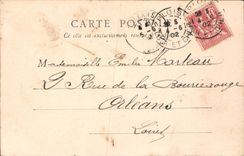 CARTE POS
Ce côté est exclusivement rés
Mademoiselle Emilie Marteau
2 Rue de la Bourie rouge
Orléans
Loiret